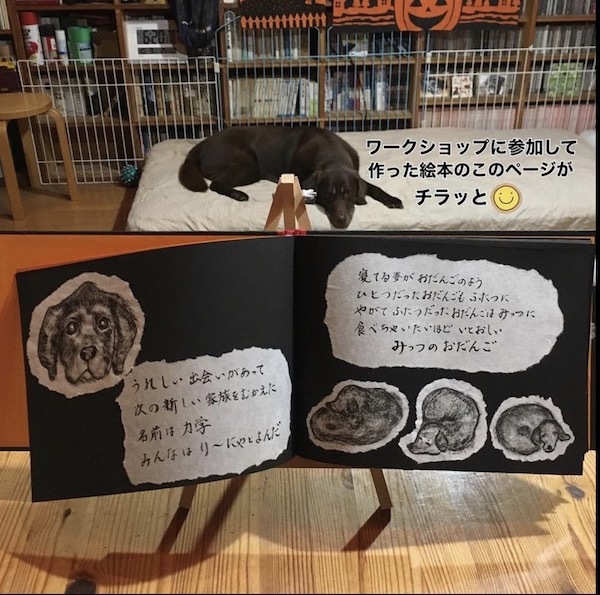 ワークショップに参加して
作った絵本のこのページが
チラッと
うれしい出会いがあって
次の新しい家族をむかえた
名前は力学
みんなはり〜にゃとよんだ
寝てる姿がおだんごのよう
ひとつだったおだんごもふたつに
やがてふたつだったおだんごはみっつに
食べちゃいたいほどいとおしい
みっつのおだんご